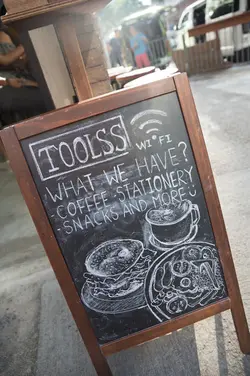 TOOLSS
WI•FI
WHAT WE HAVE?
- COFFEE - STATIONERY
- SNACKS AND MORE